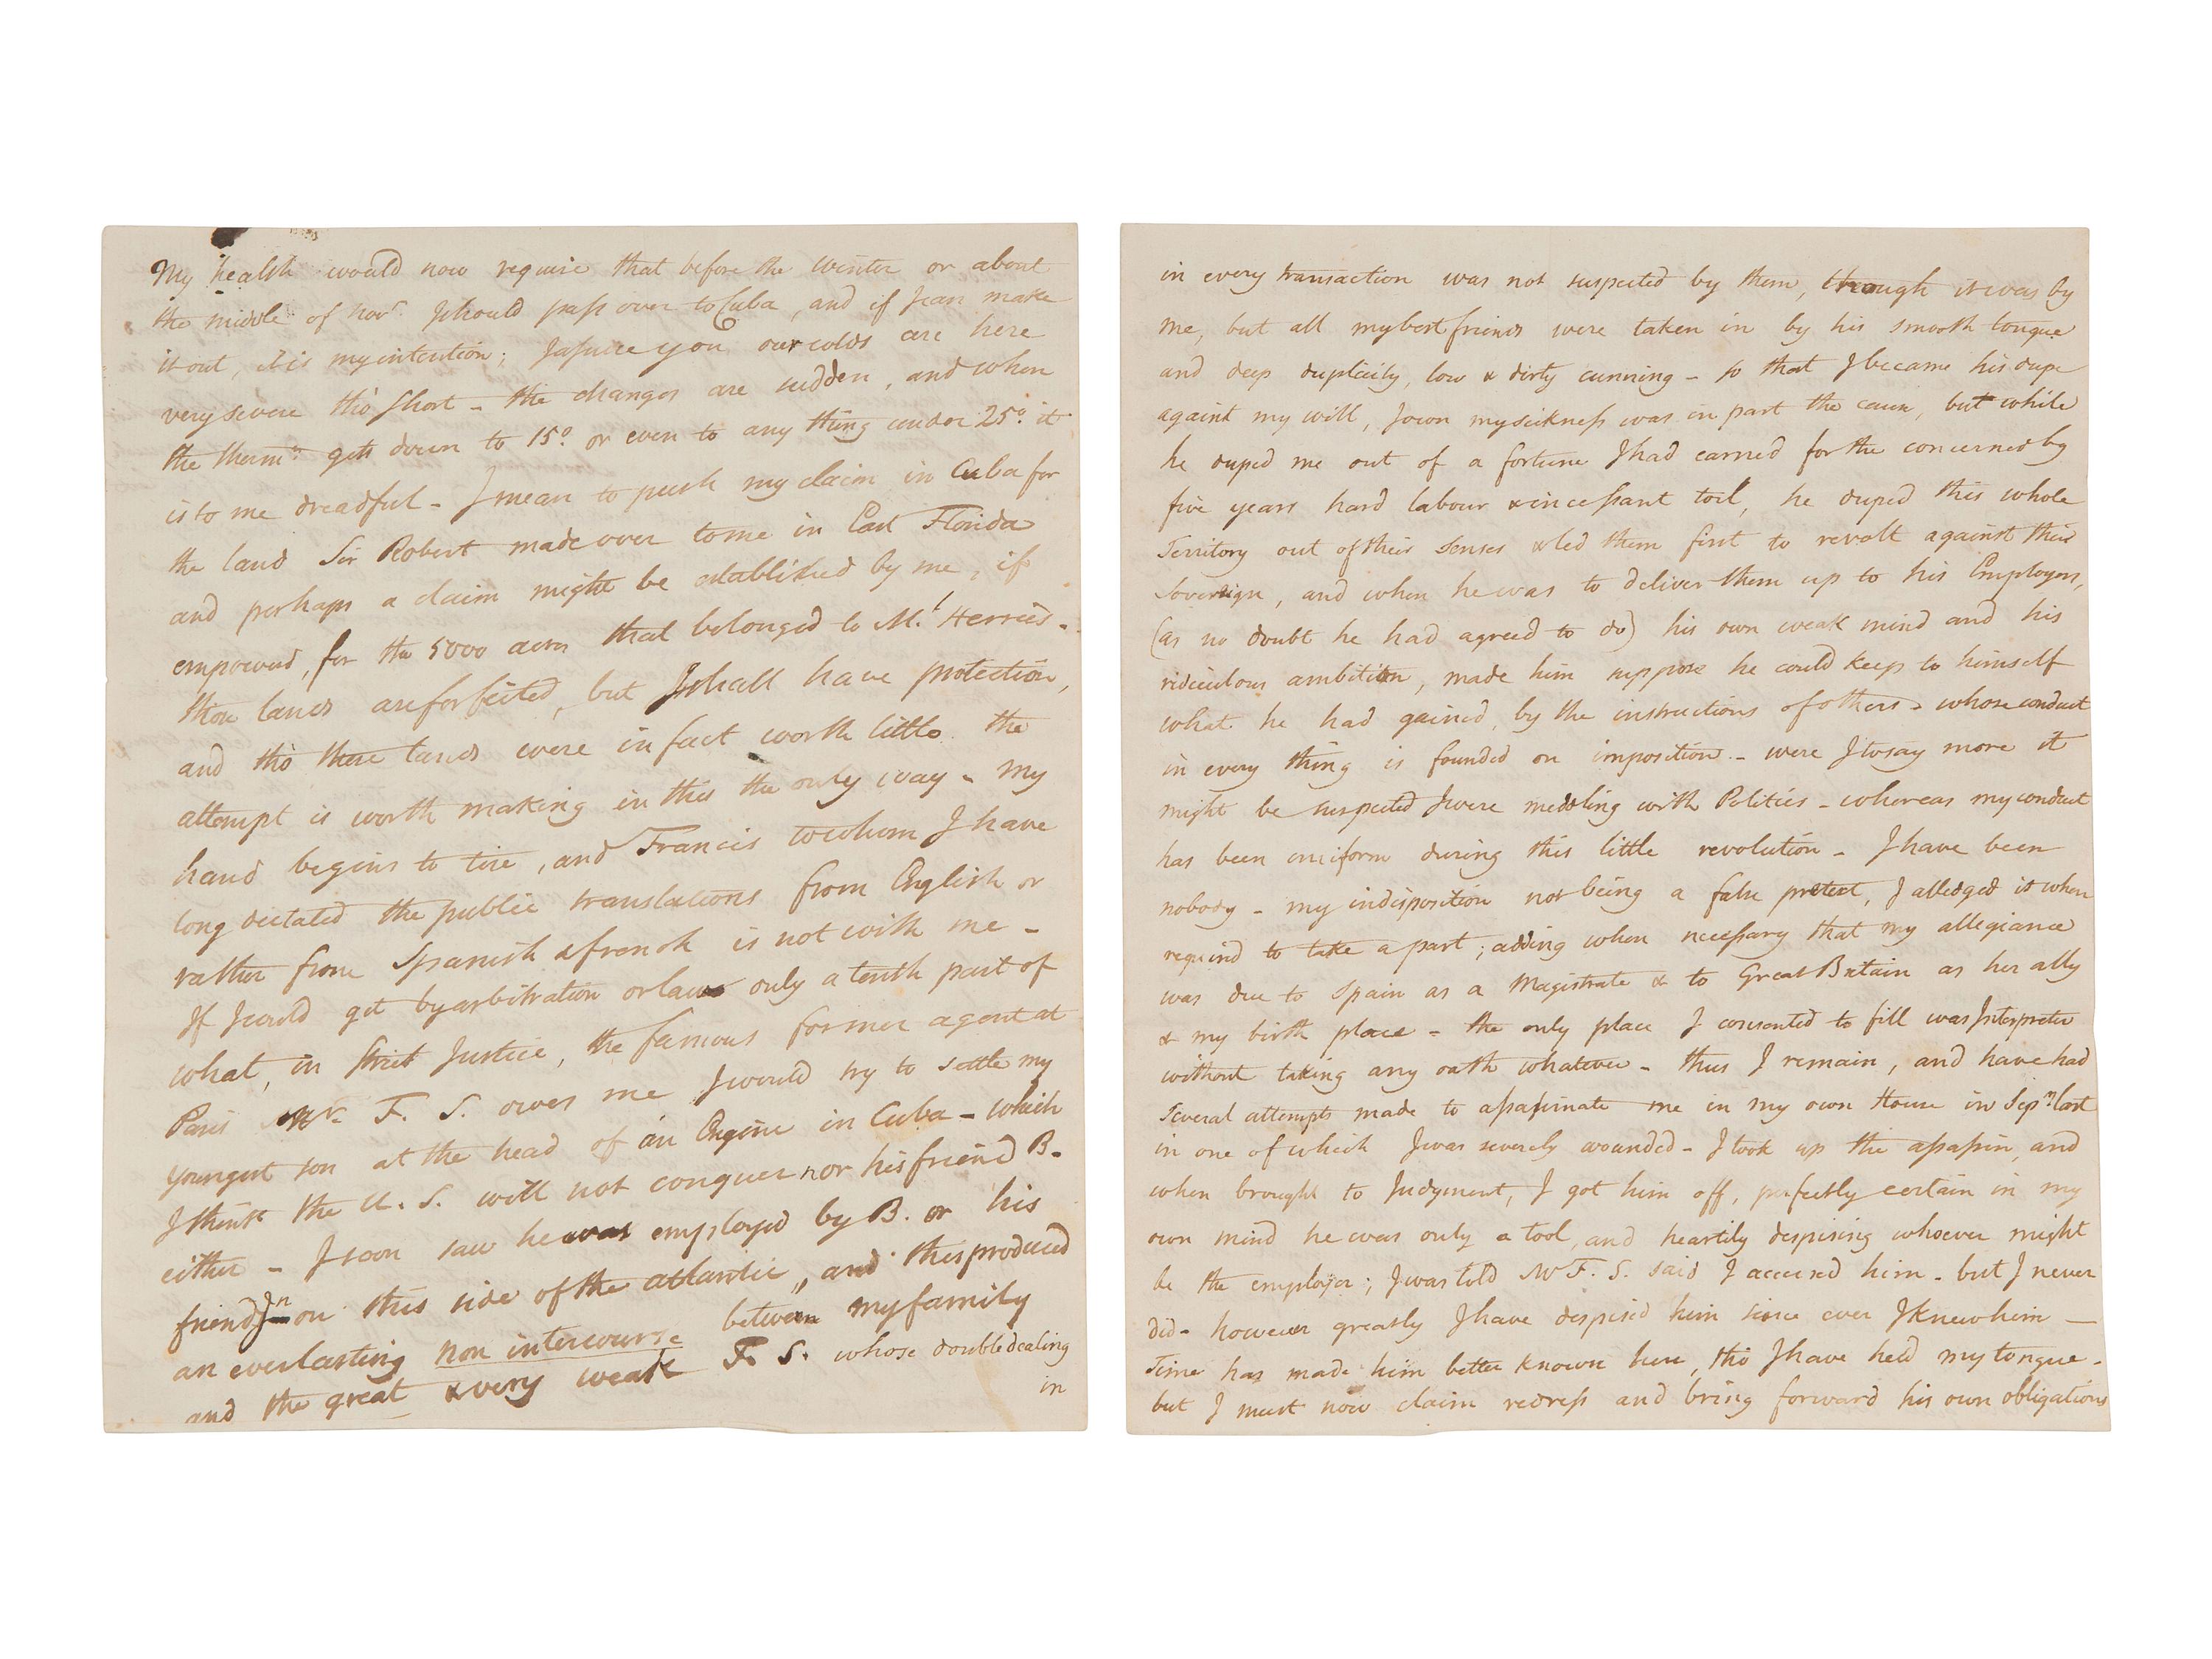 My health would now require that before the winter or about
the middle of Novr. I should pass over to Cuba, and if I can make
it out, it is my intention; I assure you our colds are here
very severe tho' short - the changes are sudden, and when
the Thermr. gets down to 15° or even to any thing under 25° it
is to me dreadful - I mean to push my claim in Cuba for
the land Sir Robert made over to me in East Florida
and perhaps a claim might be established by me, if
empowered, for the 5000 acres that belonged to Mr. Herries -
those lands are forfeited, but I shall have protection,
and tho' these lands were in fact worth little the
attempt is worth making in this the only way - My
hand begins to tire, and Francis to whom I have
long dictated the public translations from English or
rather from Spanish & french is not with me -
If I could get by arbitration or law only a tenth part of
what, in strict Justice, the famous former agent at
Paris Mr. F. S. owes me I would try to settle my
youngest son at the head of an Engine in Cuba - which
I think the U. S. will not conquer nor his friend B.
either - I soon saw he was employed by B. or his
friend Jn on this side of the atlantic, and this produced
an everlasting non intercourse between my family
and the great & very weak F. S. whose double dealing
in
in every transaction was not suspected by them, though it was by
me, but all my best friends were taken in by his smooth tongue
and deep duplicity, low & dirty cunning - so that I became his dupe
againt my will, I own my sickness was in part the cause, but while
he duped me out of a fortune I had earned for the concerned by
five years hard labour & incessant toil, he duped this whole
Territory out of their senses & led them first to revolt against their
Sovereign, and when he was to deliver them up to his Employers,
(as no doubt he had agreed to do) his own weak mind and his
ridiculous ambition, made him suppose he could keep to himself
what he had gained, by the instructions of others - whose conduct
in every thing is founded on imposition - were I to say more it
might be suspected I were meddling with Politics - whereas my conduct
has been uniform during this little revolution - I have been
nobody - my indisposition not being a false pretext, I alledged it when
required to take a part; adding when necessary that my allegiance
was due to Spain as a Magistrate & to Great Britain as her ally
& my birth place - the only place I consented to fill was Interpreter
without taking any oath whatever - thus I remain, and have had
Several attempts made to assassinate me in my own House in Sepr. last
in one of which I was severely wounded - I took up the assassin, and
when brought to Judgment, I got him off, perfectly certain in my
own mind he was only a tool, and heartily despising whoever might
be the employer; I was told Mr F. S. said I accused him - but I never
did - however greatly I have despised him since ever I knew him —
Time has made him better known here, tho I have held my tongue -
but I must now claim redress and bring forward his own obligations